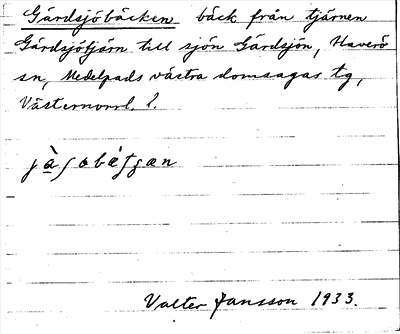 Gårdsjöbäcken bäck från tjärnen
Gårdsjötjärn till sjön Gårdsjön, Haverö
sn, Medelpads västra domsagas tg,
Västernorrl. l.
Valter Jansson 1933.